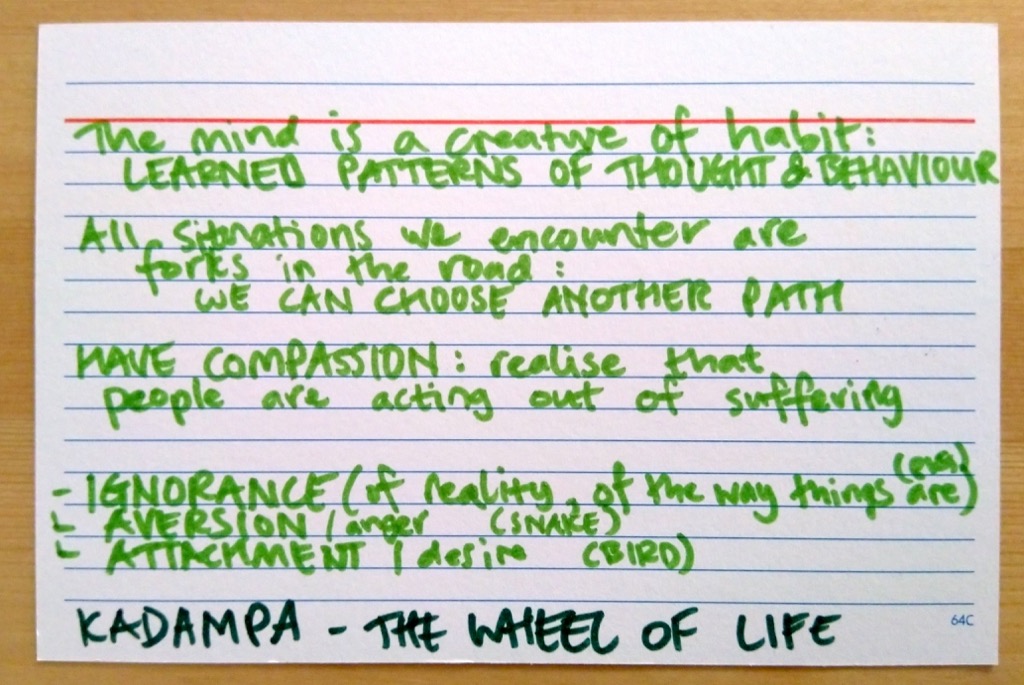 The mind is a creature of habit:
LEARNED PATTERNS OF THOUGHT & BEHAVIOUR
All situations we encounter are
forks in the road:
WE CAN CHOOSE ANOTHER PATH
HAVE COMPASSION: realise that
people are acting out of suffering
- IGNORANCE (of reality, of the way things are)
AVERSION / anger (SNAKE)
ATTACHMENT / desire (BIRD)
KADAMPA - THE WHEEL OF LIFE
64C